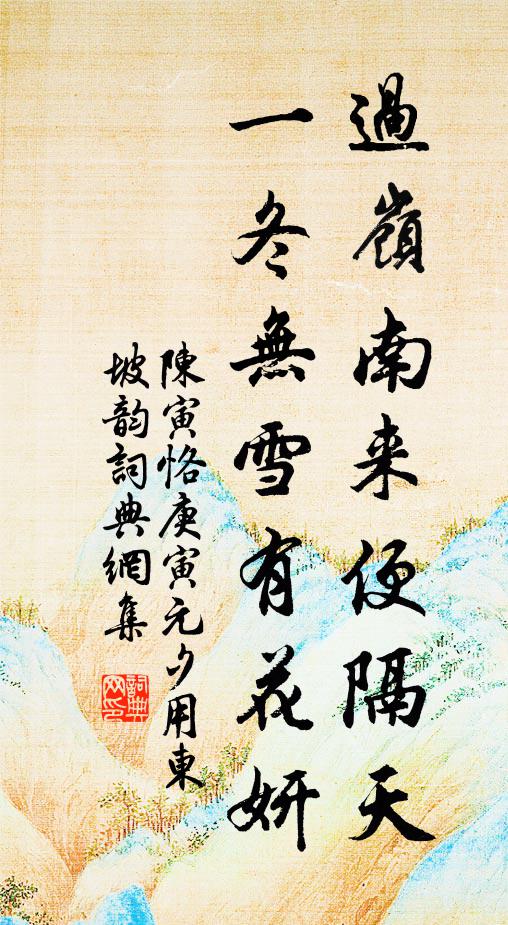 過嶺南来便隔天
一冬無雪有花妍
陳寅恪庚寅元夕用東
坡韵詞典網集
詞典
网印